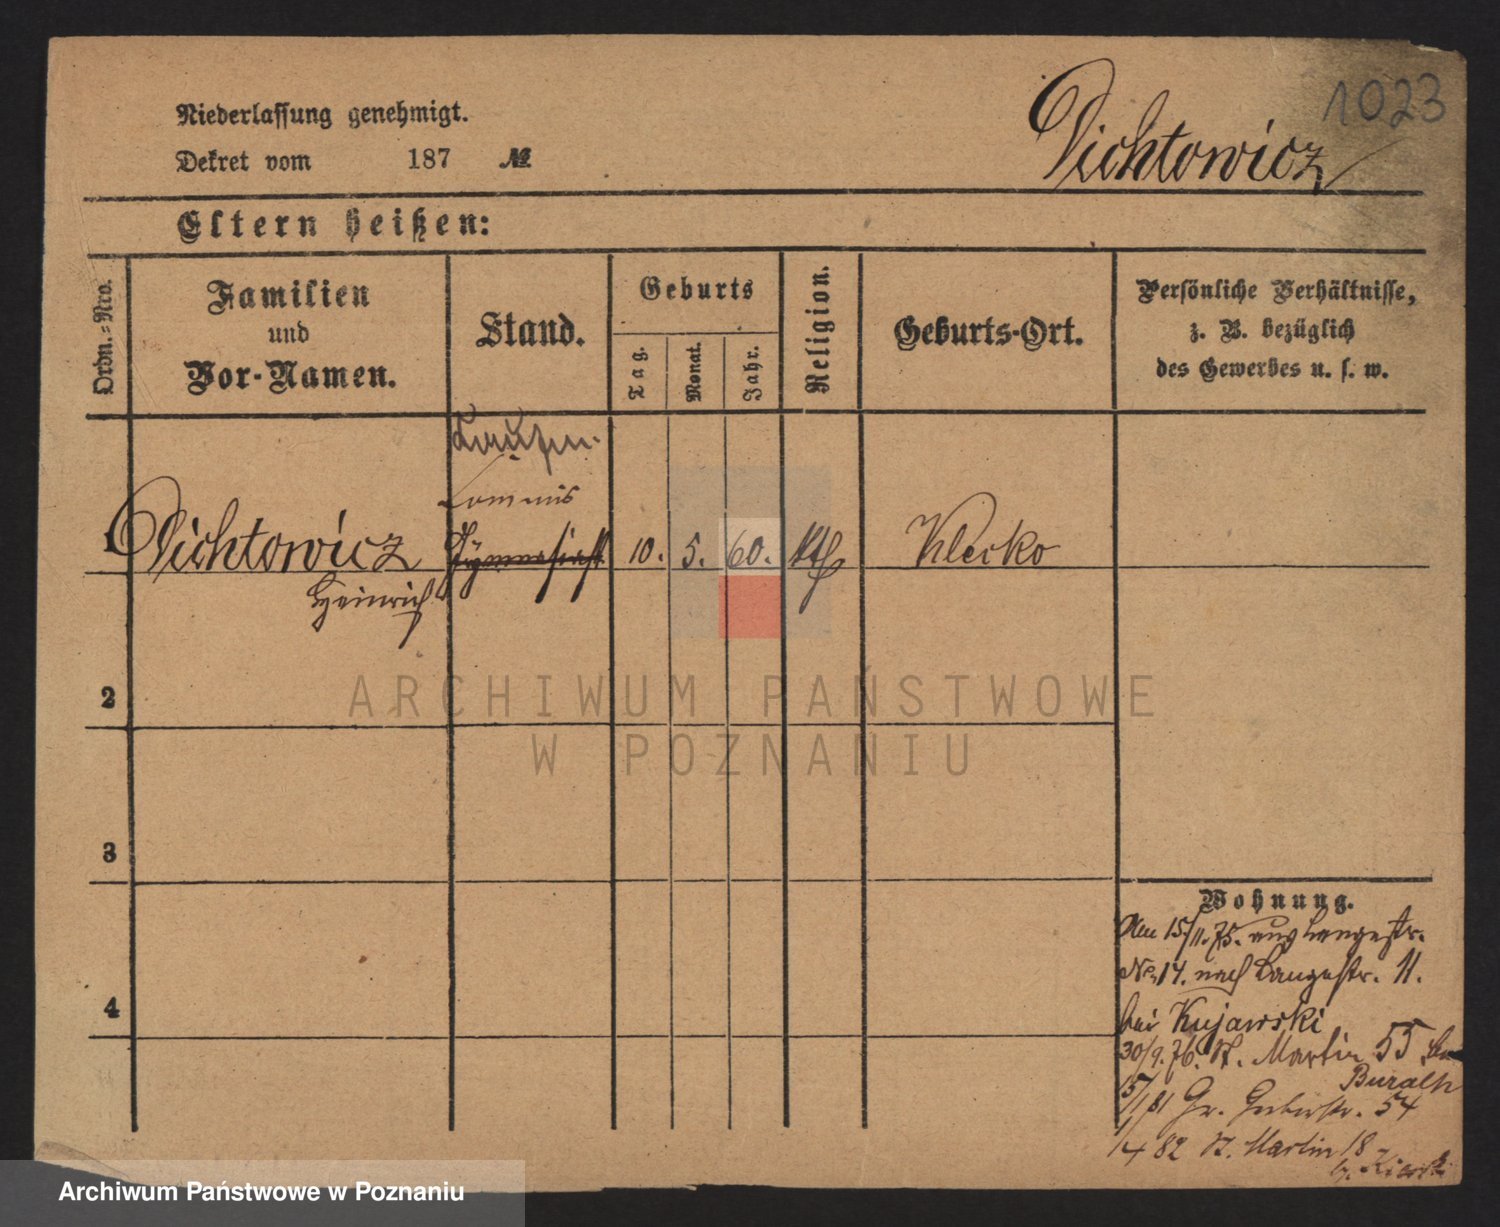 1023
Dichtowicz
Niederlassung genehmigt.
Dekret vom 187 №
Eltern heißen:
Ordn.-Nro.
Familien
und
Vor-Namen.
Stand.
Geburts
Tag.
Monat.
Jahr.
Religion.
Geburts-Ort.
Persönliche Verhältnisse,
z. B. bezüglich
des Gewerbes u. s. w.
Commis
1 Dichtowicz Gymnasiast 10. 5. 60. kth Klecko
Heinrich
2
3
4
Wohnung.
Am 15/11.75. aus Langestr.
No 14. nach Langestr. 11.
bei Kujawski
30/9.76. St. Martin 55
15/1 81 Gr. Gerberstr. 54
1/4 82 St. Martin 18
ARCHIWUM PAŃSTWOWE
W POZNANIU
Archiwum Państwowe w Poznaniu